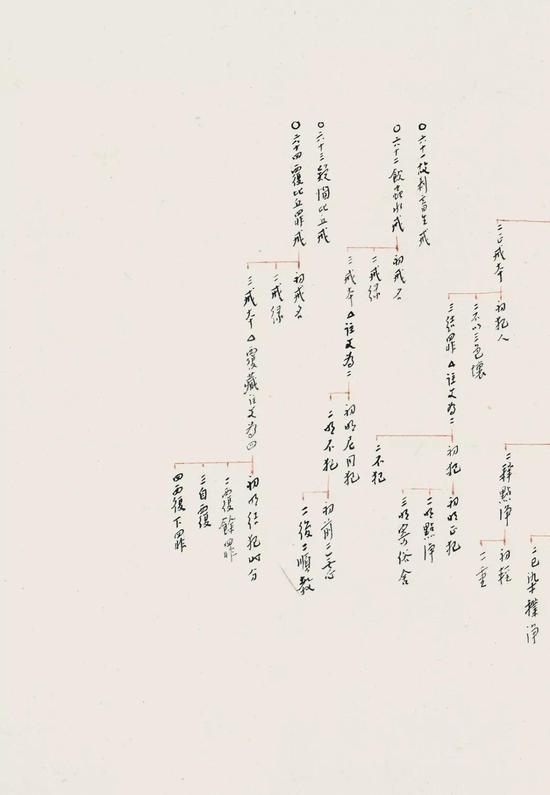 二正戒本
初犯人
二不以三色壞
三結罪△註文為二
初犯
初明正犯
二明點淨
三明寄俗舍
二不犯
二釋點淨
初輕
二重
二已染襆淨
〇六十一故刹畜生戒
〇六十二飲蟲水戒
初戒名
二戒緣
三戒本△註文為二
初明尼同犯
二明不犯
初前二無心
二後二順教
〇六十三疑惱比丘戒
〇六十四覆比丘罪戒
初戒名
二戒緣
三戒本△覆藏註文為四
初明結犯時分
二覆餘罪
三自覆
四覆下罪